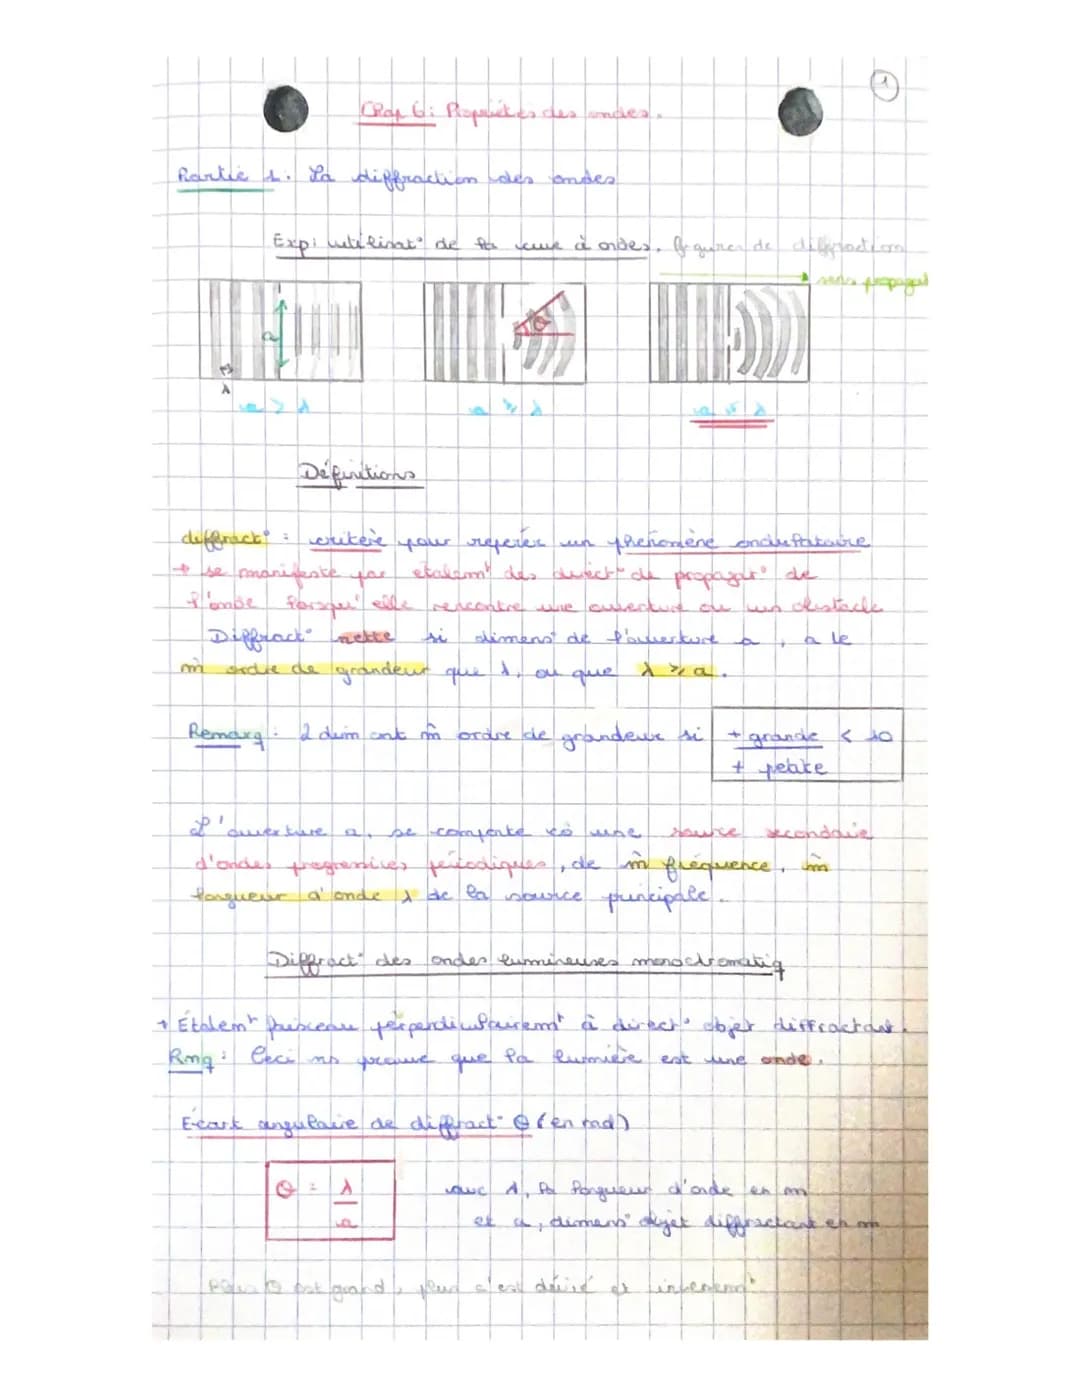 1
Chap 6: Propriétés des ondes.
Partie 1. La diffraction des ondes
Exp: utilisat° de la cuve à ondes. figures de diffraction
sens propagat
a
θ
λ
a > λ
a ≽ λ
a ≈ λ
Définitions
diffract° : critère pour repérer un phénomène ondulatoire
→ se manifeste par étalemt des direct° de propagat° de
l'onde lorsqu'elle rencontre une ouverture ou un obstacle
Diffract° nette si dimens° de l'ouverture a, a le
m̂ ordre de grandeur que λ, ou que λ ≥ a.
Remarq : 2 dim ont m̂ ordre de grandeur si + grande < 10
+ petite
L'ouverture a, se comporte cô une source secondaire
d'ondes progressives périodiques, de m̂ fréquence, m̂
longueur d'onde λ de la source principale.
Diffract° des ondes lumineuses monochromatiq
→ Étalemt faisceau perpendiculairemt à direct° objet diffractant.
Rmq : Ceci ns prouve que la lumière est une onde.
Écart angulaire de diffract° θ (en rad)
θ = λ
a
avec λ, la longueur d'onde en m
et a, dimens° objet diffractant en m
Plus θ est grand, plus c'est dévié et inversemt